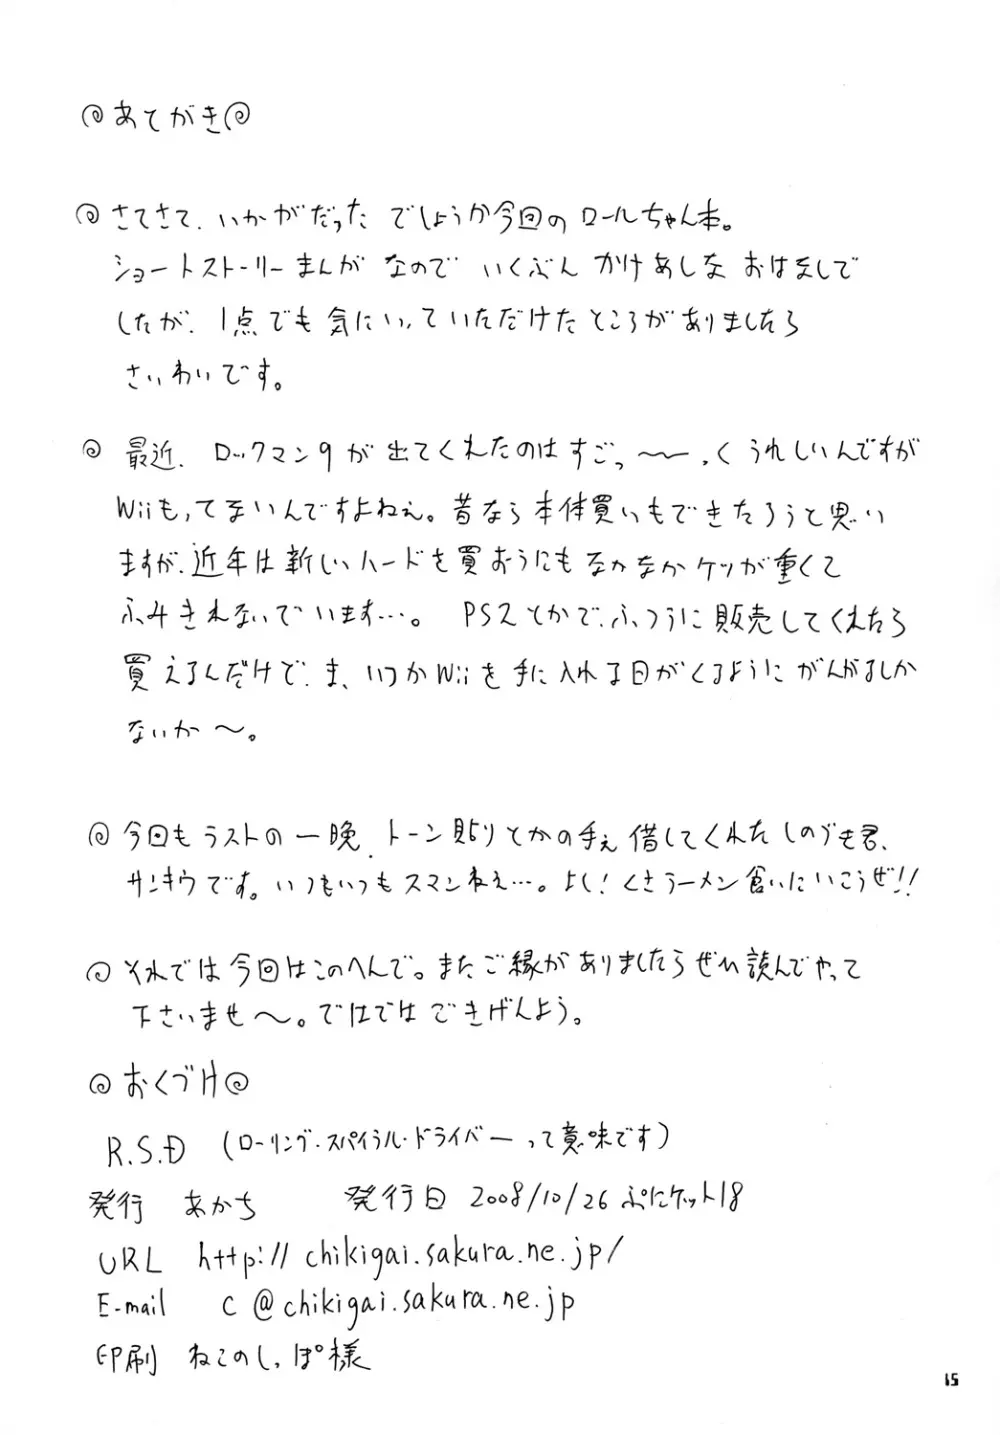 あとがき
さてさて、いかがだったでしょうか今回のロールちゃん本。
ショートストーリーまんがなのでいくぶんかけあしなおはなしで
したが、1点でも気にいっていただけたところがありましたら
さいわいです。
最近、ロックマン9が出てくれたのはすごっ〜〜っくうれしいんですが
Wiiもってないんですよねぇ。昔なら本体買いもできたろうと思い
ますが、近年は新しいハードを買おうにもなかなかケツが重くて
ふみきれないでいます…。 PS2とかで、ふつうに販売してくれたら
買えるんだけど、ま、いつかWiiを手に入れる日がくるようにがんばるしか
ないか〜。
今回もラストの一晩、トーン貼りとかの手を借してくれたしのづき君、
サンキウです。いつもいつもスマンねぇ…。よし!くさラーメン食いにいこうぜ!!
それでは今回はこのへんで。またご縁がありましたらぜひ読んでやって
下さいませ〜。ではではごきげんよう。
おくづけ
R.S.D (ローリング・スパイラル・ドライバーって意味です)
発行 あかち 発行日 2008/10/26 ぷにケット18
URL http://chikigai.sakura.ne.jp/
E-mail c@chikigai.sakura.ne.jp
印刷 ねこのしっぽ様
15